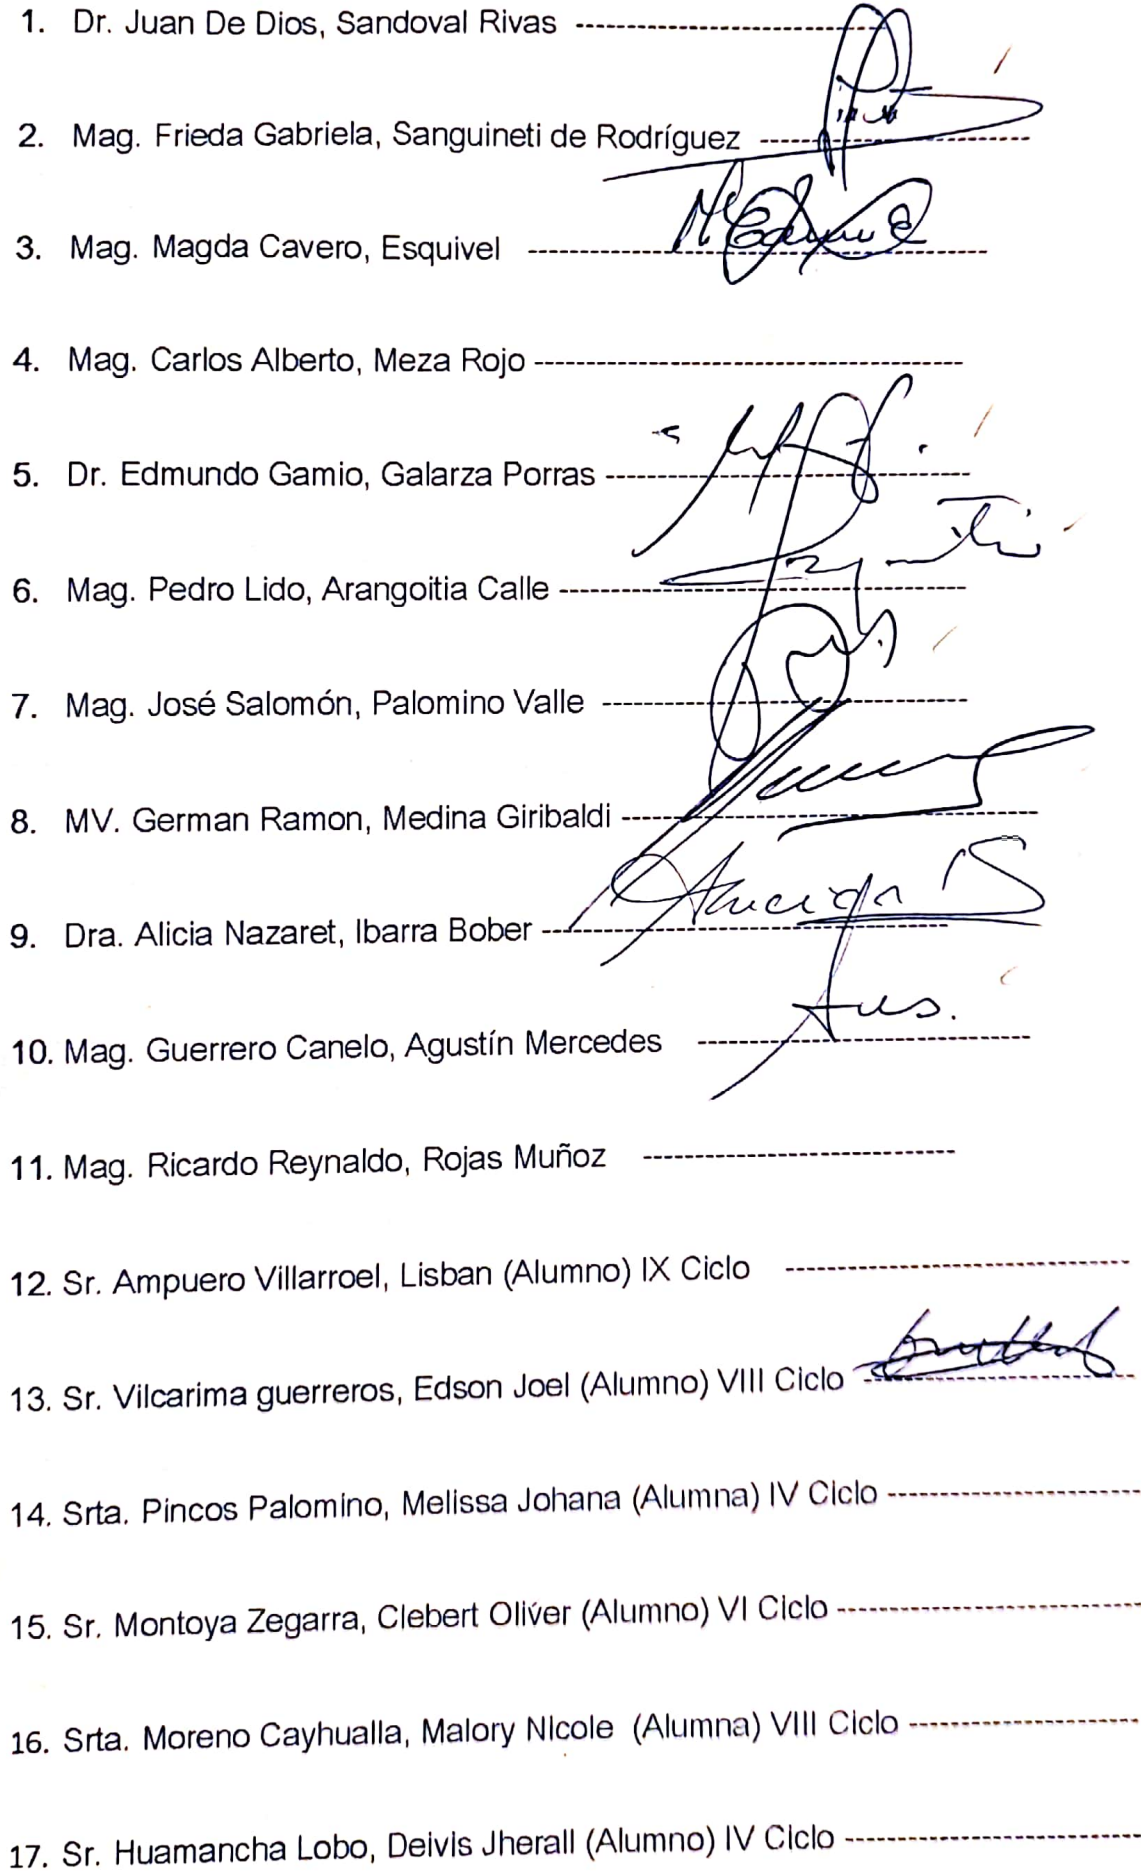 1. Dr. Juan De Dios, Sandoval Rivas
2. Mag. Frieda Gabriela, Sanguineti de Rodríguez
3. Mag. Magda Cavero, Esquivel
4. Mag. Carlos Alberto, Meza Rojo
5. Dr. Edmundo Gamio, Galarza Porras
6. Mag. Pedro Lido, Arangoitia Calle
7. Mag. José Salomón, Palomino Valle
8. MV. German Ramon, Medina Giribaldi
9. Dra. Alicia Nazaret, Ibarra Bober
10. Mag. Guerrero Canelo, Agustín Mercedes
11. Mag. Ricardo Reynaldo, Rojas Muñoz
12. Sr. Ampuero Villarroel, Lisban (Alumno) IX Ciclo
13. Sr. Vilcarima guerreros, Edson Joel (Alumno) VIII Ciclo
14. Srta. Pincos Palomino, Melissa Johana (Alumna) IV Ciclo
15. Sr. Montoya Zegarra, Clebert Oliver (Alumno) VI Ciclo
16. Srta. Moreno Cayhualla, Malory Nicole (Alumna) VIII Ciclo
17. Sr. Huamancha Lobo, Deivis Jherall (Alumno) IV Ciclo